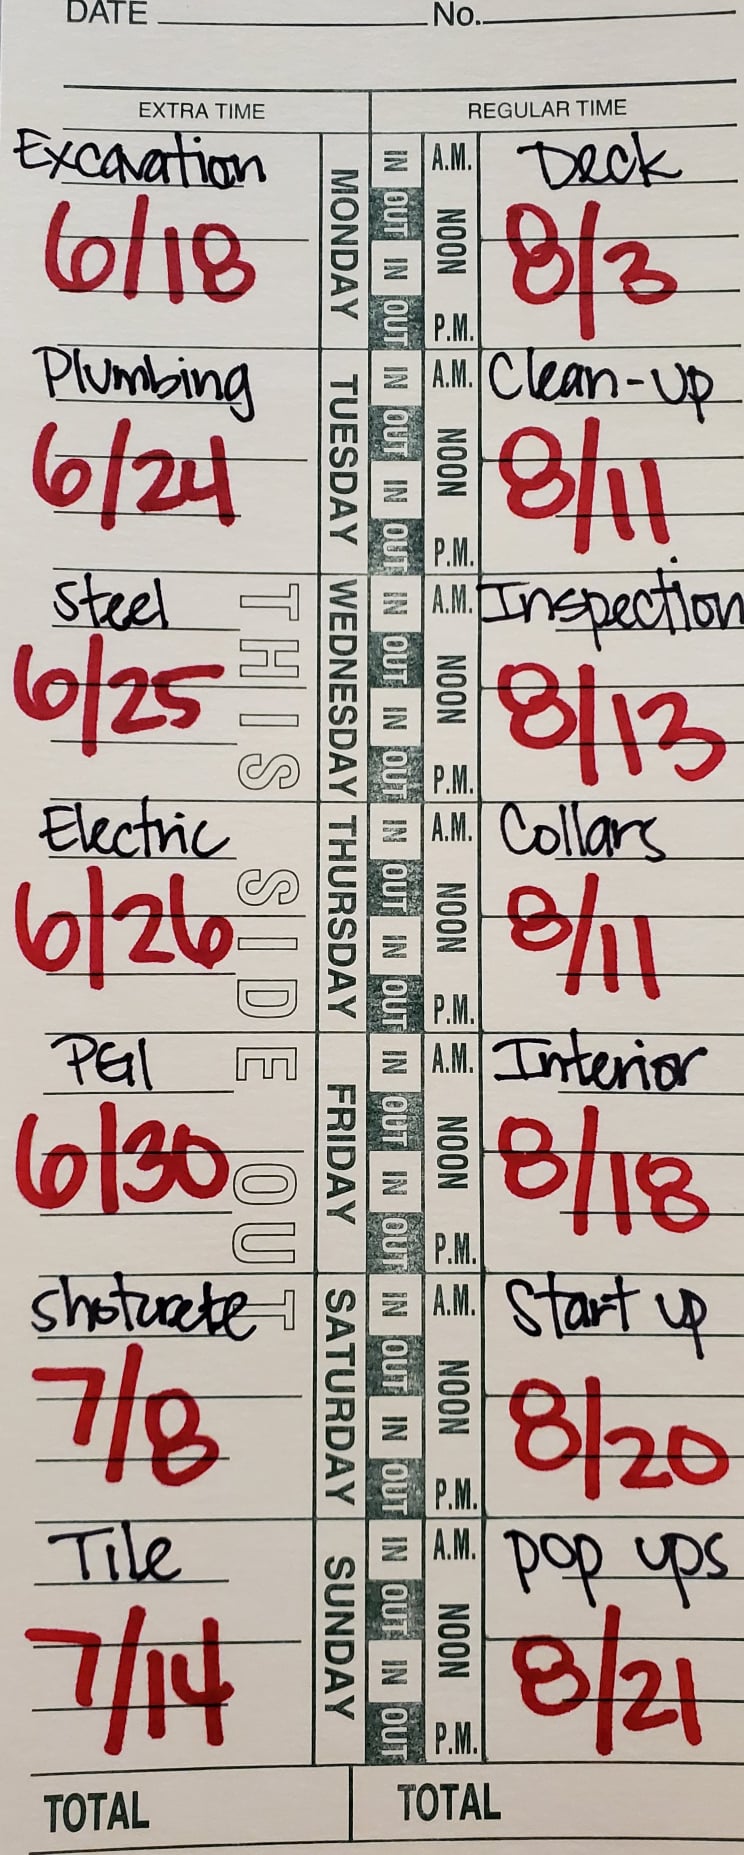 DATE No.
EXTRA TIME REGULAR TIME
Excavation
6/18
MONDAY
IN OUT IN OUT
A.M. NOON P.M.
Deck
8/3
Plumbing
6/24
TUESDAY
IN OUT IN OUT
A.M. NOON P.M.
Clean-up
8/11
Steel
6/25
WEDNESDAY
IN OUT IN OUT
A.M. NOON P.M.
Inspection
8/13
Electric
6/26
THURSDAY
IN OUT IN OUT
A.M. NOON P.M.
Collars
8/11
PGI
6/30
FRIDAY
IN OUT IN OUT
A.M. NOON P.M.
Interior
8/18
Shotcrete
7/8
SATURDAY
IN OUT IN OUT
A.M. NOON P.M.
Start up
8/20
Tile
7/14
SUNDAY
IN OUT IN OUT
A.M. NOON P.M.
pop ups
8/21
THIS SIDE OUT
TOTAL TOTAL